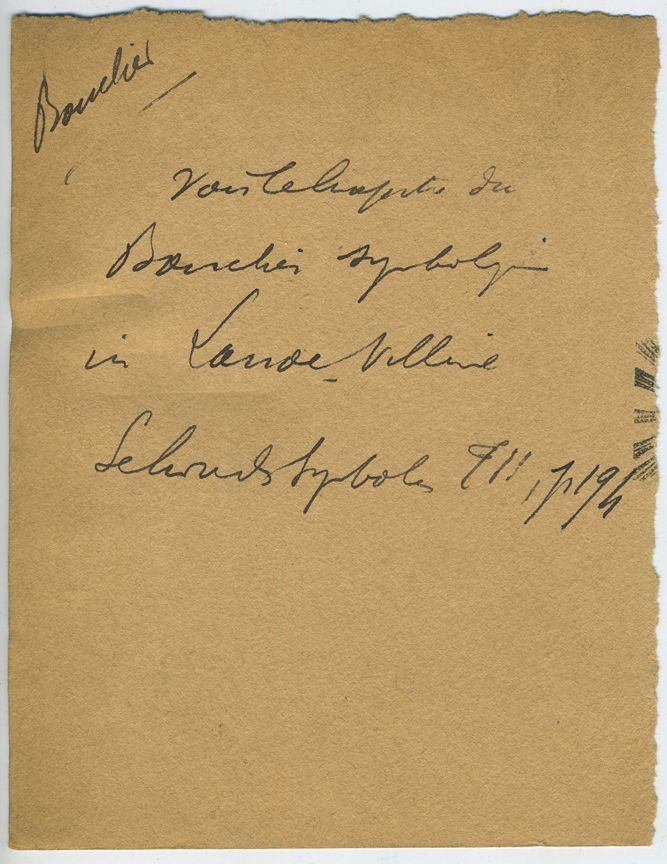 Bouclier
Voir le chapitre du
Bouclier symbolique
in Lanoe-Villène
Le livre des Symboles T II, p 194